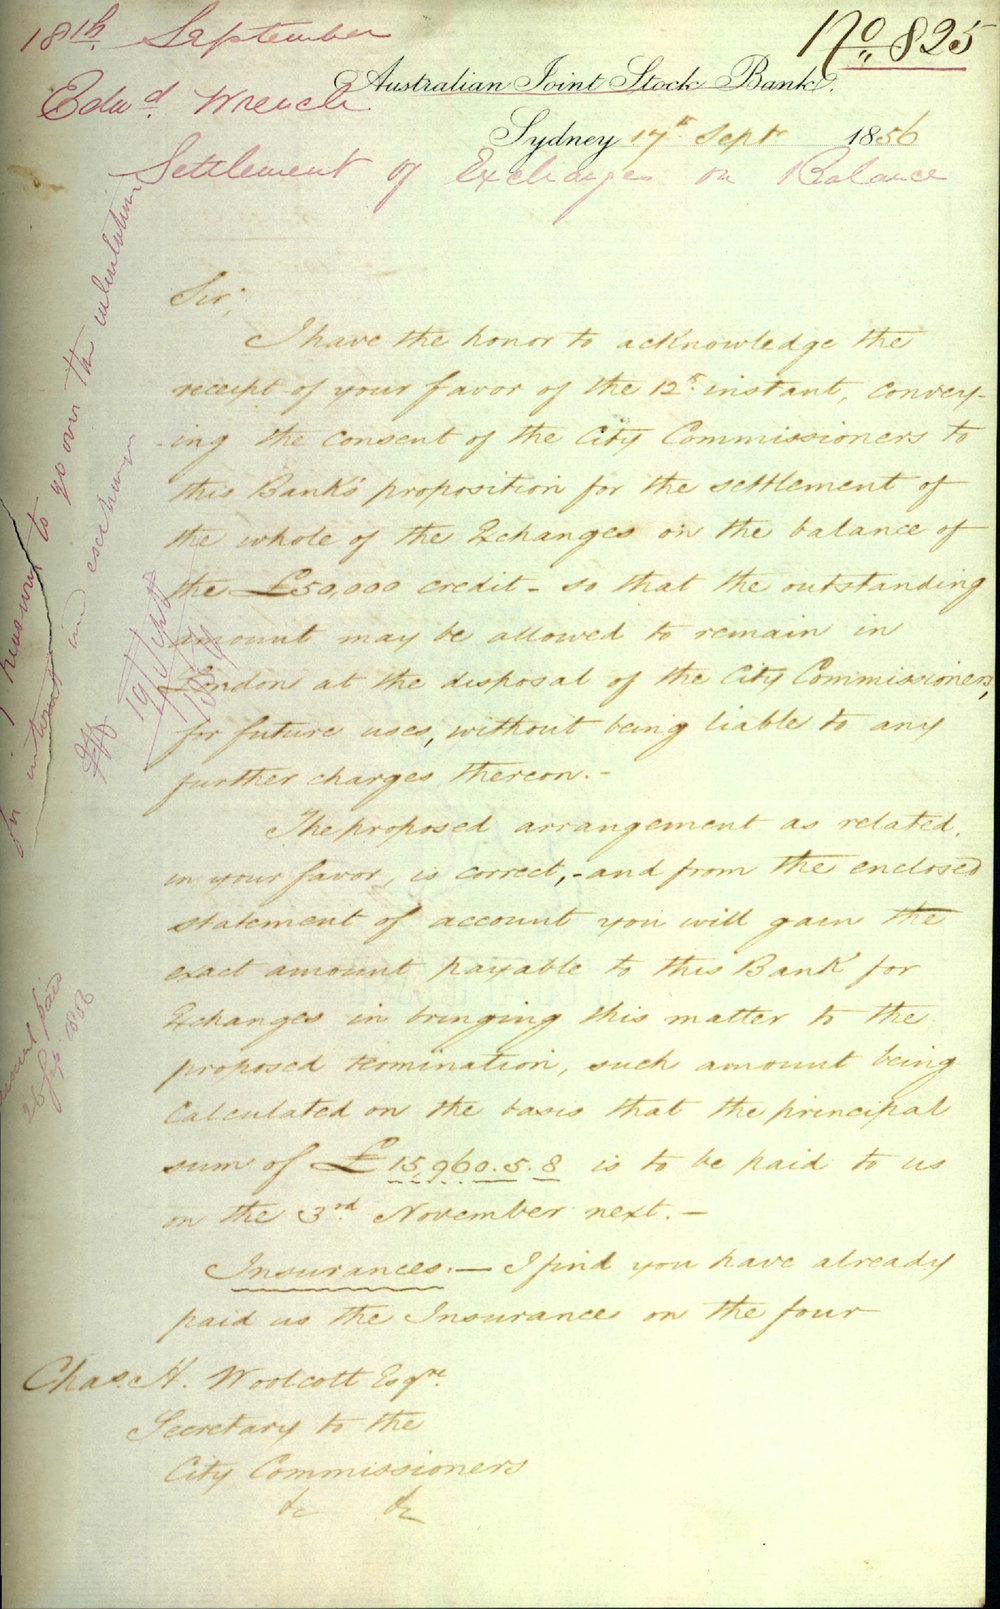 18th September
No 825
Edwd. Wrench
Australian Joint Stock Bank.
Sydney 17th Septr 1856
Settlement of Exchanges on Balance
Sir,
I have the honor to acknowledge the
receipt of your favor of the 12th instant, convey-
-ing the consent of the City Commissioners to
this Bank's proposition for the settlement of
the whole of the Exchanges on the balance of
the £50,000 credit - so that the outstanding
amount may be allowed to remain in
London at the disposal of the City Commissioners,
for future uses, without being liable to any
further charges thereon. -
The proposed arrangement as related,
in your favor, is correct, - and from the enclosed
statement of account you will gain the
exact amount payable to this Bank for
Exchanges in bringing this matter to the
proposed termination, such amount being
Calculated on the basis that the principal
sum of £15,960.5.8 is to be paid to us
on the 3rd November next. -
Insurances. - I find you have already
paid us the Insurances on the four
Chas. H. Woolcott Esqre.
Secretary to the
City Commissioners
&c &c
to go over the calculation
interest and exchange
19/Sept
1856